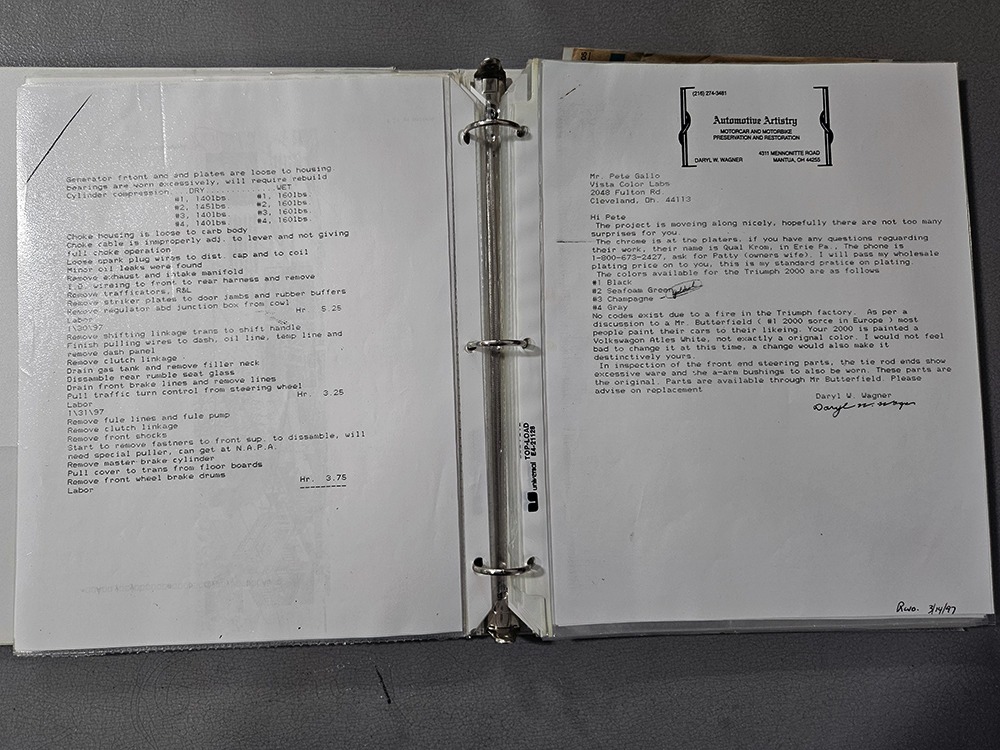 Generator frtont and end plates are loose to housing
bearings are worn excessively, will require rebuild
Cylinder compression DRY WET
#1, 140lbs #1, 160lbs
#2, 145lbs #2, 160lbs
#3, 140lbs #3, 160lbs
#4, 140lbs #4, 160lbs
Choke housing is loose to carb body
Choke cable is inmproperly adj. to lever and not giving
full choke operation
Loose spark plug wires to dist. cap and to coil
Minor oil leaks were found
Remove exhaust and intake manifold
I.D. wireing to front to rear harness and remove
Remove trafficators, R&L
Remove striker plates to door jambs and rubber buffers
Remove regulator abd junction box from cowl
Labor Hr 5.25
1\30\97
Remove shifting linkage trans to shift handle
Finish pulling wires to dash, oil line, temp line and
remove dash panel
Remove clutch linkage
Drain gas tank and remove filler neck
Dissamble rear rumble seat glass
Drain front brake lines and remove lines
Pull traffic turn control from steering wheel
Labor Hr. 3.25
1\31\97
Remove fule lines and fule pump
Remove clutch linkage
Remove front shocks
Start to remove fastners to front sup. to dissamble, will
need special puller, can get at N.A.P.A.
Remove master brake cylinder
Pull cover to trans from floor boards
Remove front wheel brake drums
Labor Hr. 3.75
TOP-LOAD
universal E4-21128
(216) 274-3461
Automotive Artistry
MOTORCAR AND MOTORBIKE
PRESERVATION AND RESTORATION
4311 MENNONITTE ROAD
DARYL W. WAGNER MANTUA, OH 44255
Mr. Pete Gallo
Vista Color Labs
2048 Fulton Rd.
Cleveland, Oh. 44113
Hi Pete
The project is moveing along nicely, hopefully there are not too many
surprises for you.
The chrome is at the platers, if you have any questions reguarding
their work, their name is Qual Krom, in Erie Pa., The phone is
1-800-673-2427, ask for Patty (owners wife). I will pass my wholesale
plating price on to you, this is my standard pratice on plating.
The colors available for the Triumph 2000 are as follows
#1 Black
#2 Seafoam Green
#3 Champagne
#4 Gray
No codes exist due to a fire in the Triumph factory. As per a
discussion to a Mr. Butterfield ( #1 2000 sorce in Europe ) most
people paint their cars to their likeing. Your 2000 is painted a
Volkswagon Atles White, not exactly a orignal color. I would not feel
bad to change it at this time, a change would also make it
destinctively yours.
In inspection of the front end steering parts, the tie rod ends show
excessive ware and the a-arm bushings to also be worn. These parts are
the original. Parts are available through Mr Butterfield. Please
advise on replacement
Daryl W. Wagner
Daryl W. Wagner
3/14/97